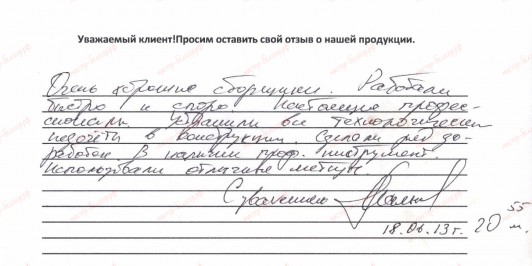 Уважаемый клиент!Просим оставить свой отзыв о нашей продукции.
Очень хорошие сборщики. Работали
быстро и споро. Настоящие профес-
сионалы. Устранили все технологические
недочёты в конструкции. Сделали ряд до-
работок. В наличии проф. инструмент.
Использовали отличные метизы.
С уважением
18.06.13г. 20 55 м.